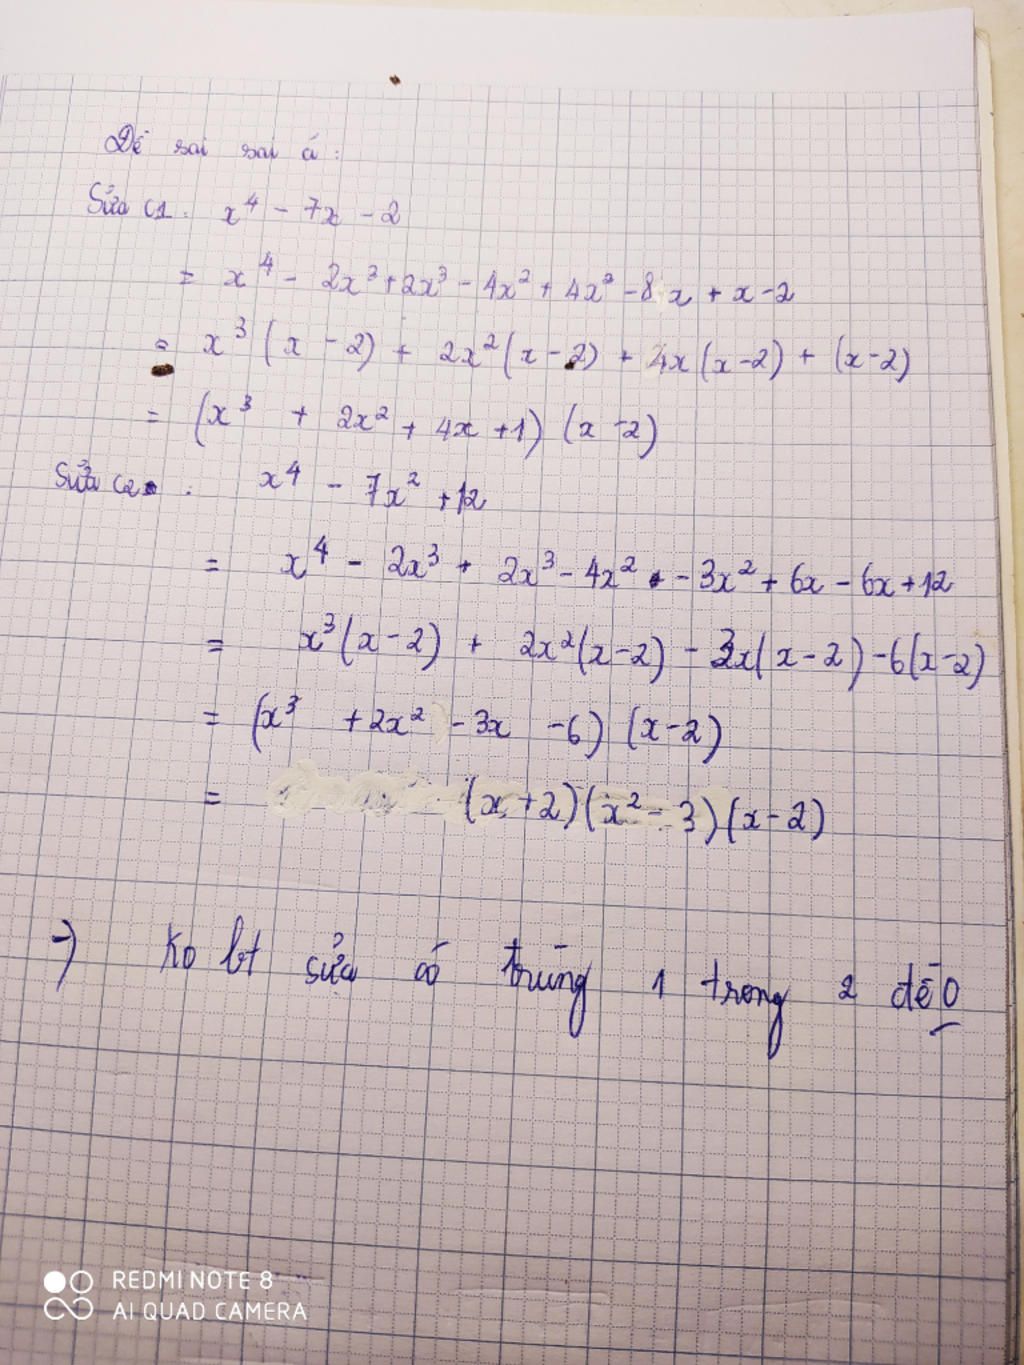 Đề sai sai á :
Sửa C1 : x⁴ - 7x - 2
= x⁴ - 2x³ + 2x³ - 4x² + 4x² - 8x + x - 2
= x³ (x - 2) + 2x² (x - 2) + 4x (x - 2) + (x - 2)
= (x³ + 2x² + 4x + 1) (x - 2)
Sửa C2 : x⁴ - 7x² + 12
= x⁴ - 2x³ + 2x³ - 4x² - 3x² + 6x - 6x + 12
= x³ (x - 2) + 2x² (x - 2) - 3x (x - 2) - 6 (x - 2)
= (x³ + 2x² - 3x - 6) (x - 2)
= (x + 2) (x² - 3) (x - 2)
→ Ko bt sửa có trúng 1 trong 2 đề
REDMI NOTE 8
AI QUAD CAMERA